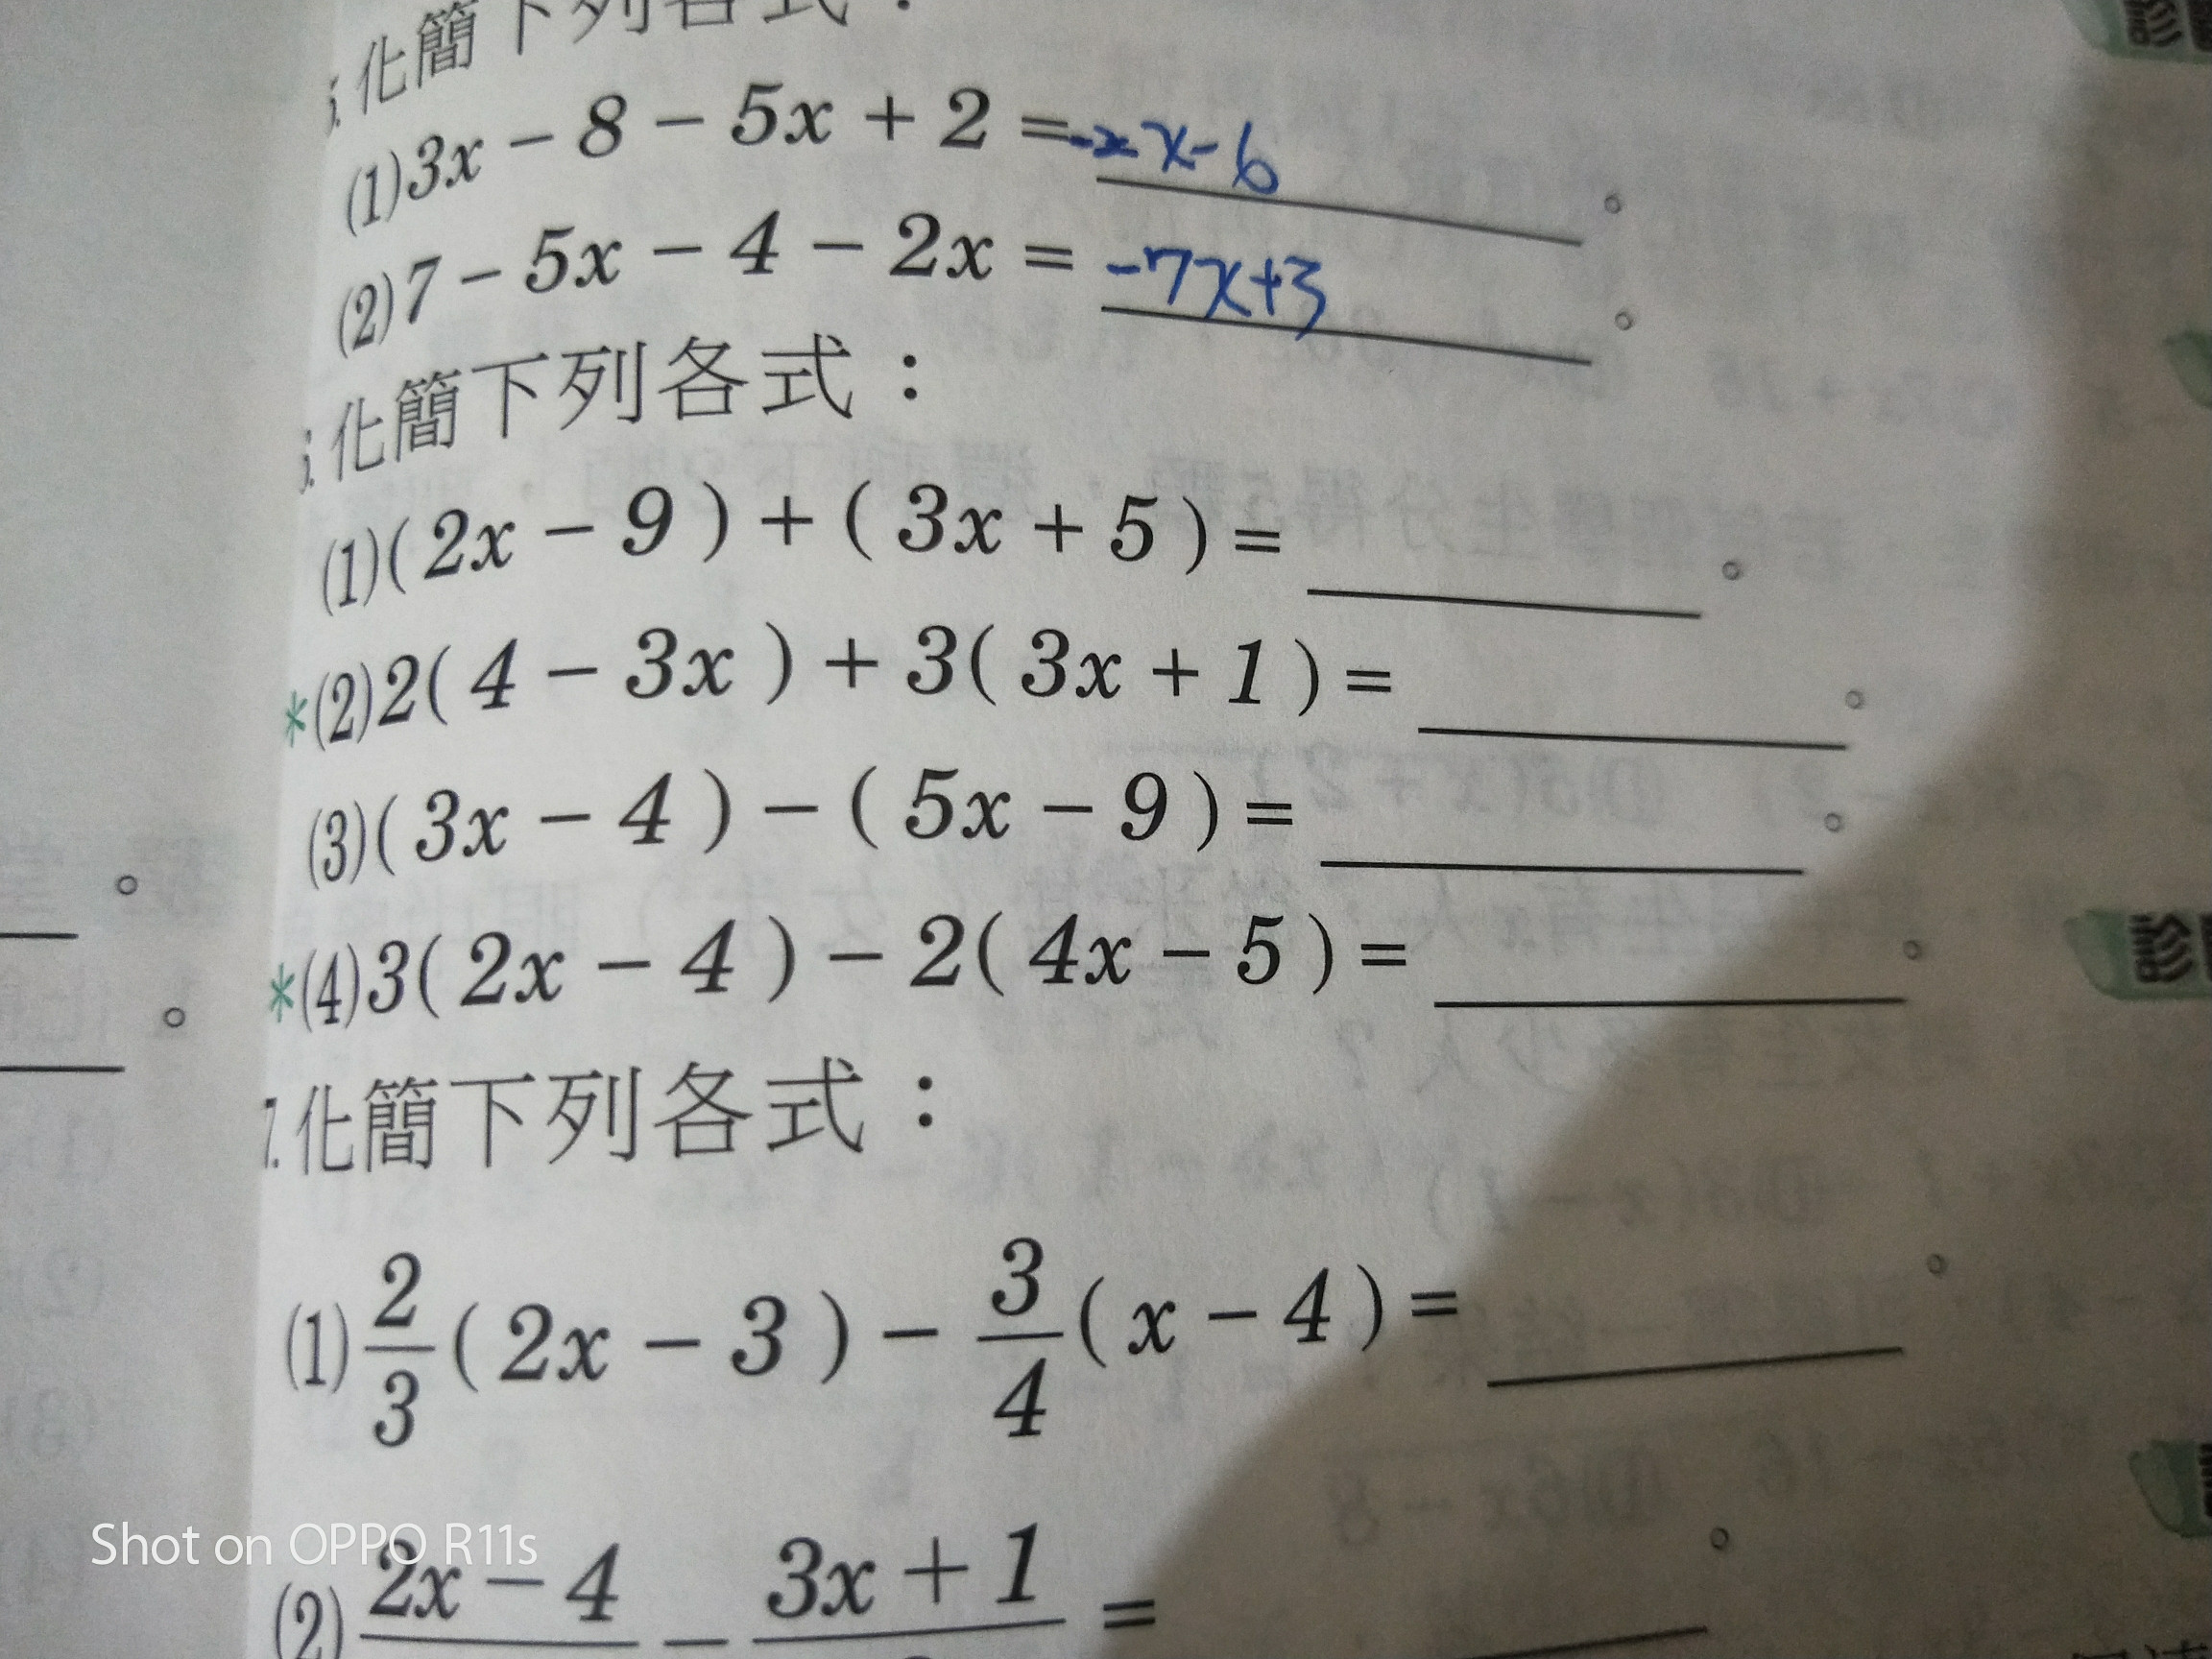 化簡下列各式：
(1)3x－8－5x＋2＝-2x-6。
(2)7－5x－4－2x＝-7x+3。
化簡下列各式：
(1)(2x－9)＋(3x＋5)＝＿＿＿＿。
*(2)2(4－3x)＋3(3x＋1)＝＿＿＿＿。
(3)(3x－4)－(5x－9)＝＿＿＿＿。
*(4)3(2x－4)－2(4x－5)＝＿＿＿＿。
7.化簡下列各式：
(1)2/3(2x－3)－3/4(x－4)＝＿＿＿＿。
(2)2x－4 － 3x＋1 ＝＿＿＿＿。
Shot on OPPO R11s